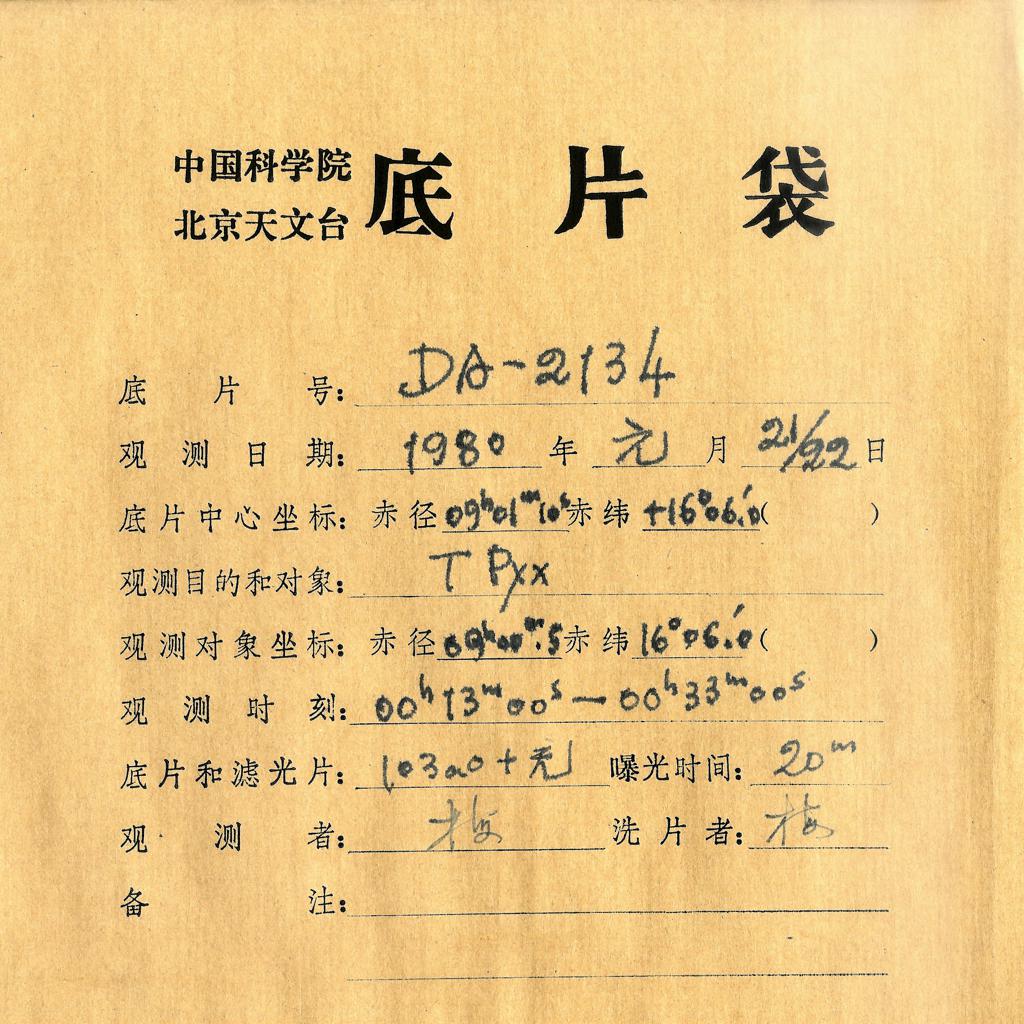 中国科学院
北京天文台
底片袋
底片号: DA-2134
观测日期: 1980年元月21/22日
底片中心坐标: 赤径09h01m10s赤纬+16°06.'0( )
观测目的和对象: T Pyx
观测对象坐标: 赤径09h00m.5赤纬16°06.'0( )
观测时刻: 00h13m00s—00h33m00s
底片和滤光片: 103aO+无 曝光时间: 20m
观测者: 梅 洗片者: 梅
备注: